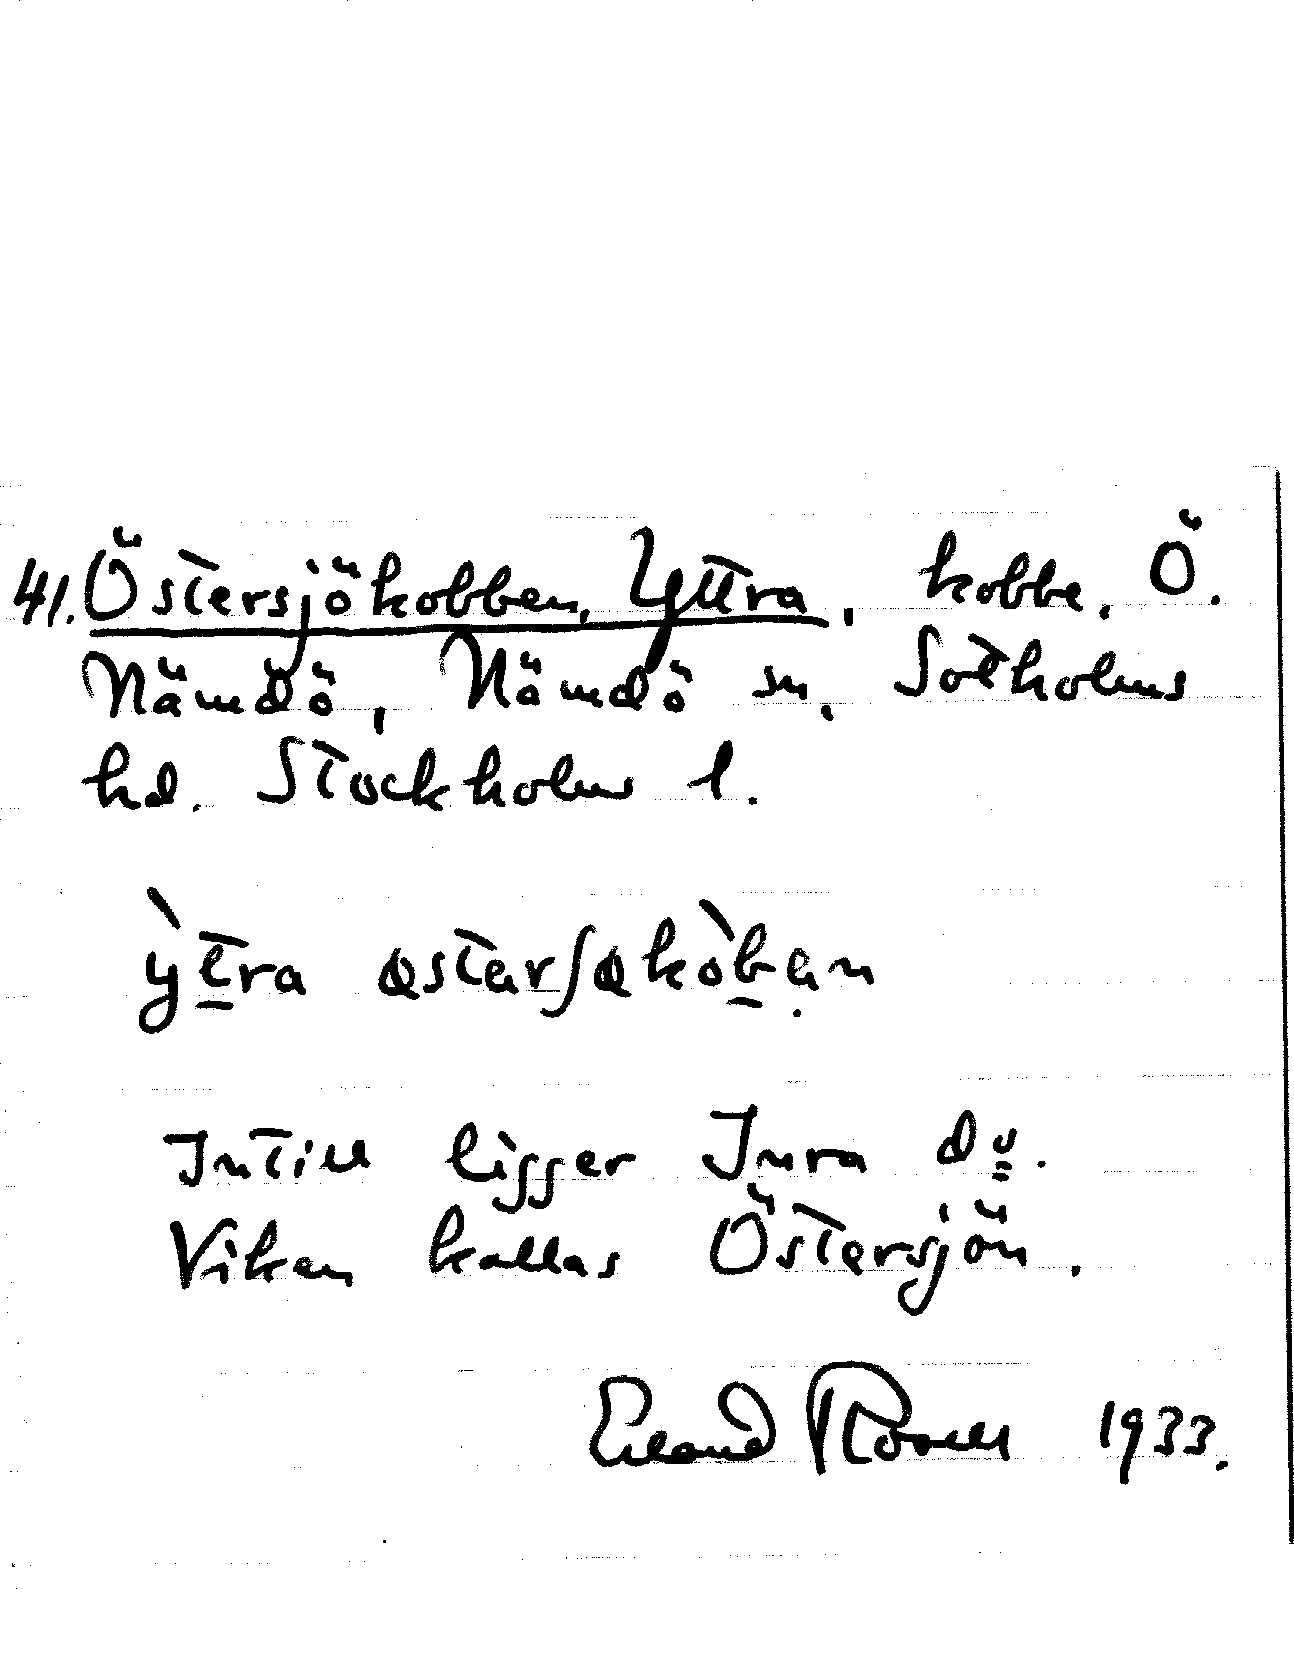 41. Östersjökobben, Yttra, kobbe. Ö.
Nämdö, Nämdö sn, Sotholms
hd. Stockholms l.
ỳt̠ra østerʃøkòb̠ẹn
Intill ligger Inra do.
Viken kallas Östersjön.
Erland Rosell 1933.